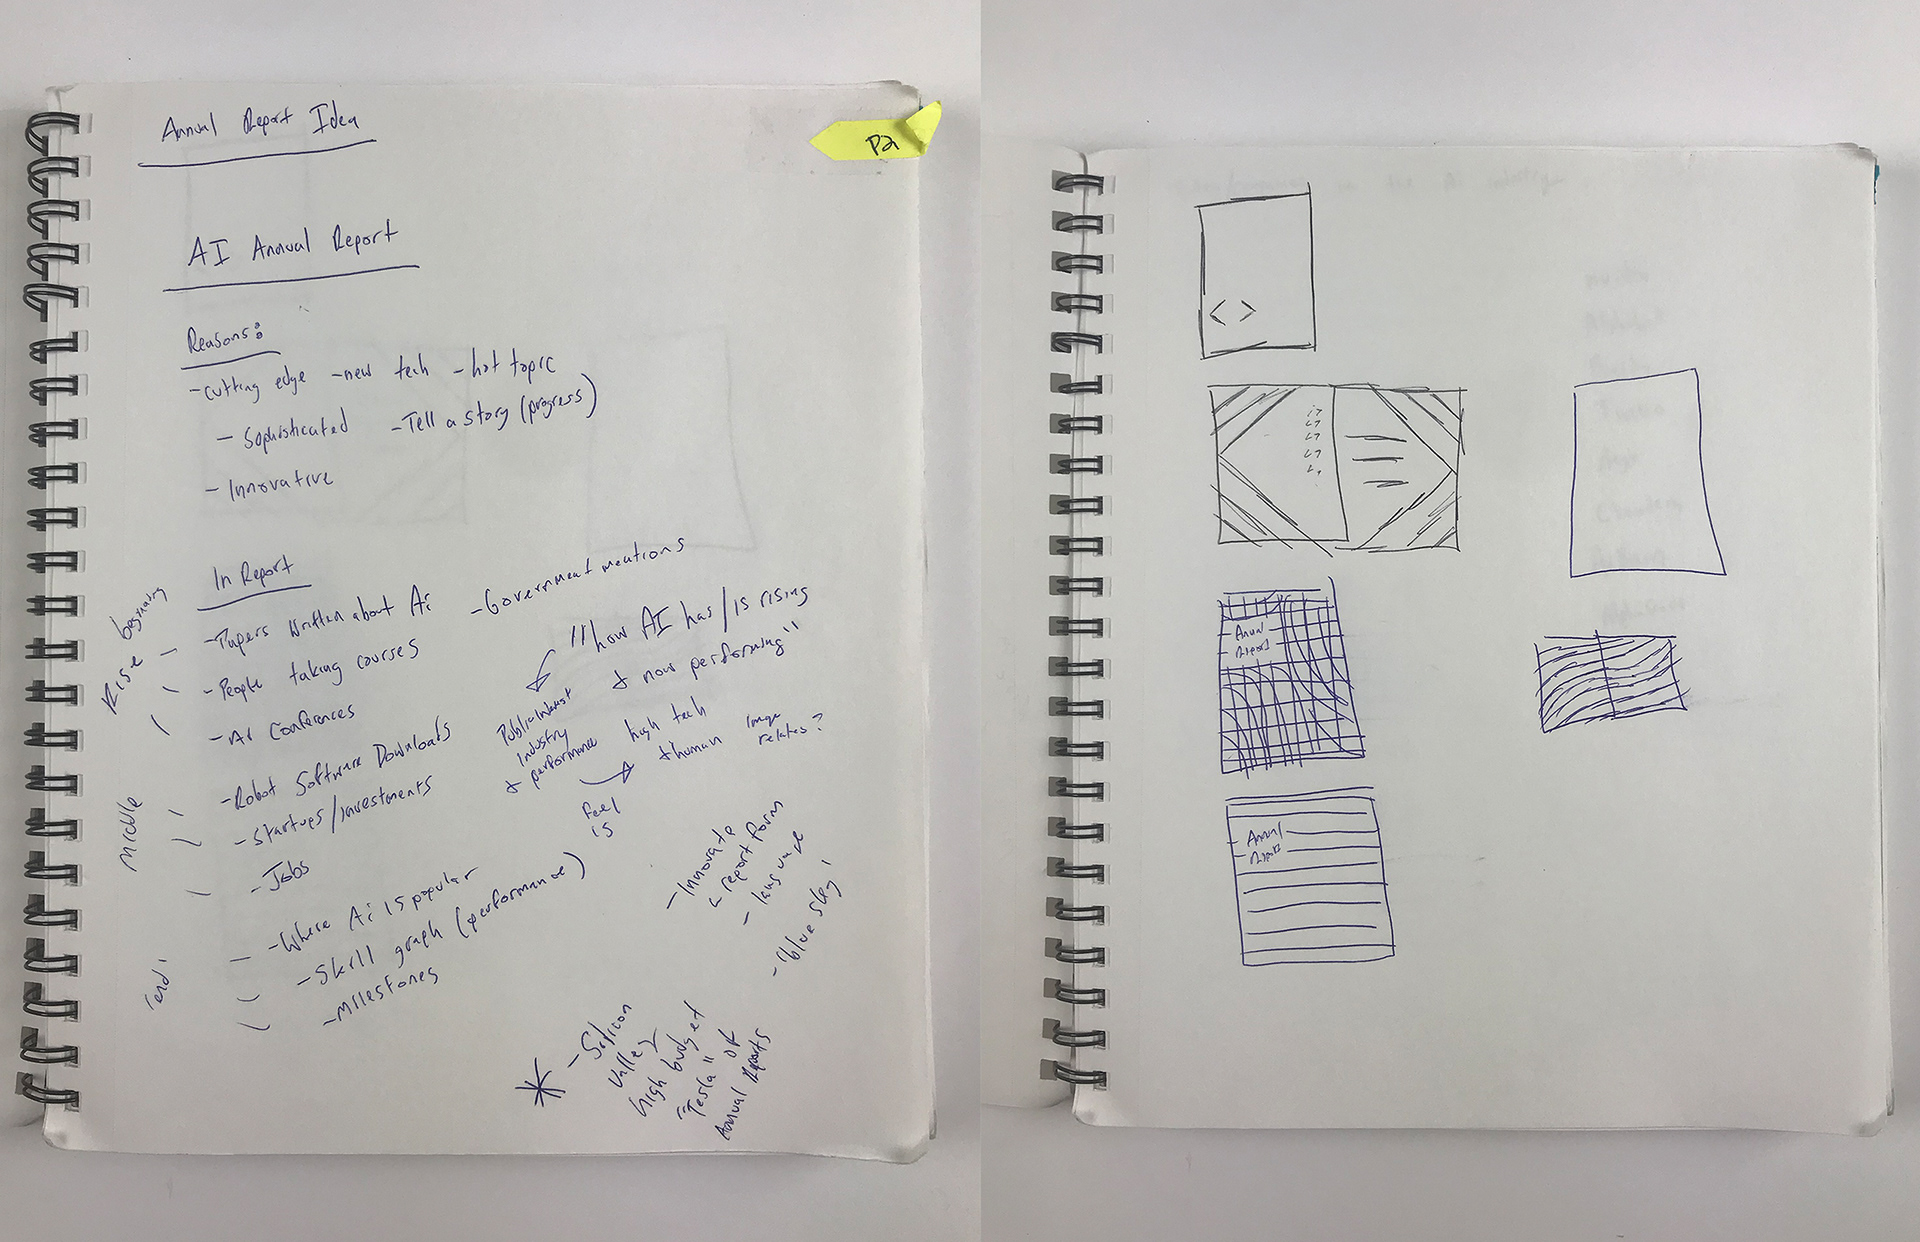 Annual Report Idea
P2
AI Annual Report
Reasons:
- cutting edge - new tech - hot topic
- Sophisticated - Tell a story (progress)
- Innovative
In Report
beginning
Rise
- Papers written about Ai - Government mentions
- People taking courses
- Ai Conferences
"how AI has/is rising
& now performing"
Public interest
Industry
& performance
high tech
& human
image
relates?
feel
is
Middle
- Robot Software Downloads
- Startups/investments
- Jobs
'end'
- Where Ai is popular
- Skill graph (performance)
- Milestones
- Innovate
a report form
- language
- 'blue sky'
* - Silicon
Valley
high budget
"Tesla" of
Annual Reports
< >
Annual
Report
Annual
Report